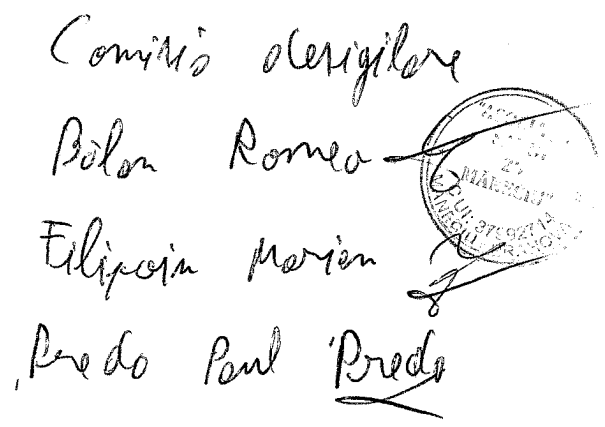 Comisia desigilare
Balan Romeo
Filipoiu Marian
Preda Paul Preda
MĂNECIU"